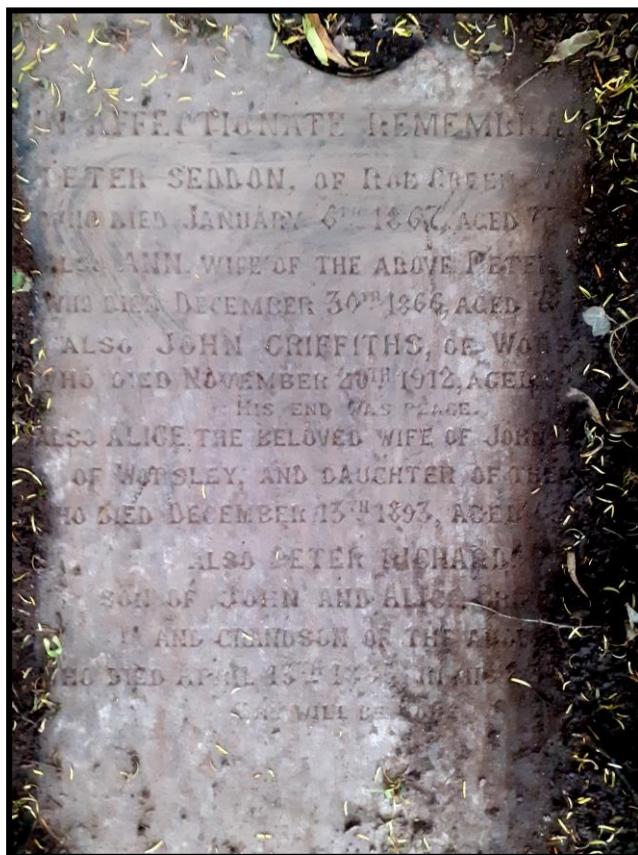 IN AFFECTIONATE REMEMBRAN
PETER SEDDON, OF ROE GREEN,
WHO DIED JANUARY 6TH 1867, AGED
ALSO ANN, WIFE OF THE ABOVE PETER
WHO DIED DECEMBER 30TH 1866, AGED
ALSO JOHN GRIFFITHS, OF WORS
WHO DIED NOVEMBER 20TH 1912, AGED
HIS END WAS PEACE.
ALSO ALICE THE BELOVED WIFE OF JOHN
OF WORSLEY, AND DAUGHTER OF THE
WHO DIED DECEMBER 13TH 1893, AGED
ALSO PETER RICHARD
SON OF JOHN AND ALICE
AND GRANDSON OF THE ABOVE
WHO DIED APRIL IN HIS
WILL BE